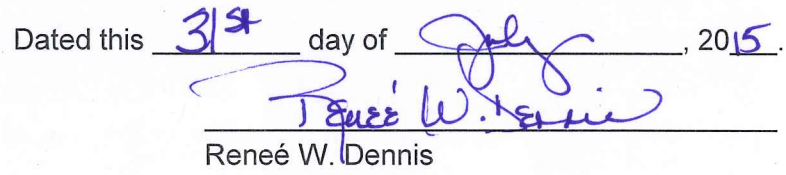 Dated this 31st day of July, 2015.
Reneé W. Dennis
Reneé W. Dennis